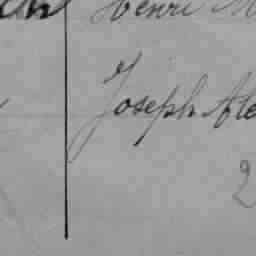 Henri M
Joseph Ale
2